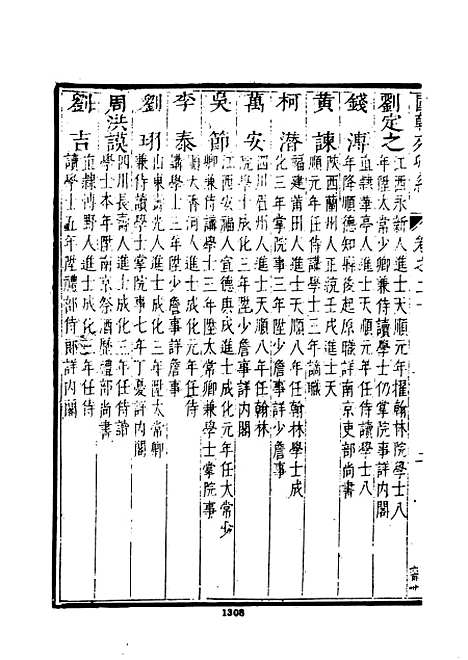 國朝列卿紀
卷之二十
劉定之
江西永新人進士天順元年擢翰林院學士八
年陞太常少卿兼侍讀學士仍掌院事詳内閣
錢溥
直隸華亭人進士天順元年任侍讀學士八
年降順德知縣後起原職詳南京吏部尚書
黃諫
陝西蘭州人正統壬戌進士天
順元年任侍講學士三年謫職
柯潛
福建莆田人進士天順八年任翰林學士成
化三年掌院事三年陞少詹事詳少詹事
萬安
四川眉州人進士天順八年任翰林
學士成化三年陞少詹事詳内閣
吳節
江西安福人宣德庚戌進士成化元年任太常少
卿兼侍讀學士三年陞太常卿兼學士掌院事
李泰
順天香河人進士成化元年任侍
講學士三年陞少詹事詳詹事
劉珝
山東壽光人進士成化三年陞太常卿
兼侍讀學士掌院事七年丁憂詳内閣
周洪謨
四川長壽人進士成化三年任侍讀
學士本年陞南京祭酒歷禮部尚書
劉吉
直隸博野人進士成化三年任侍
讀學士五年陞禮部侍郎詳内閣
1308